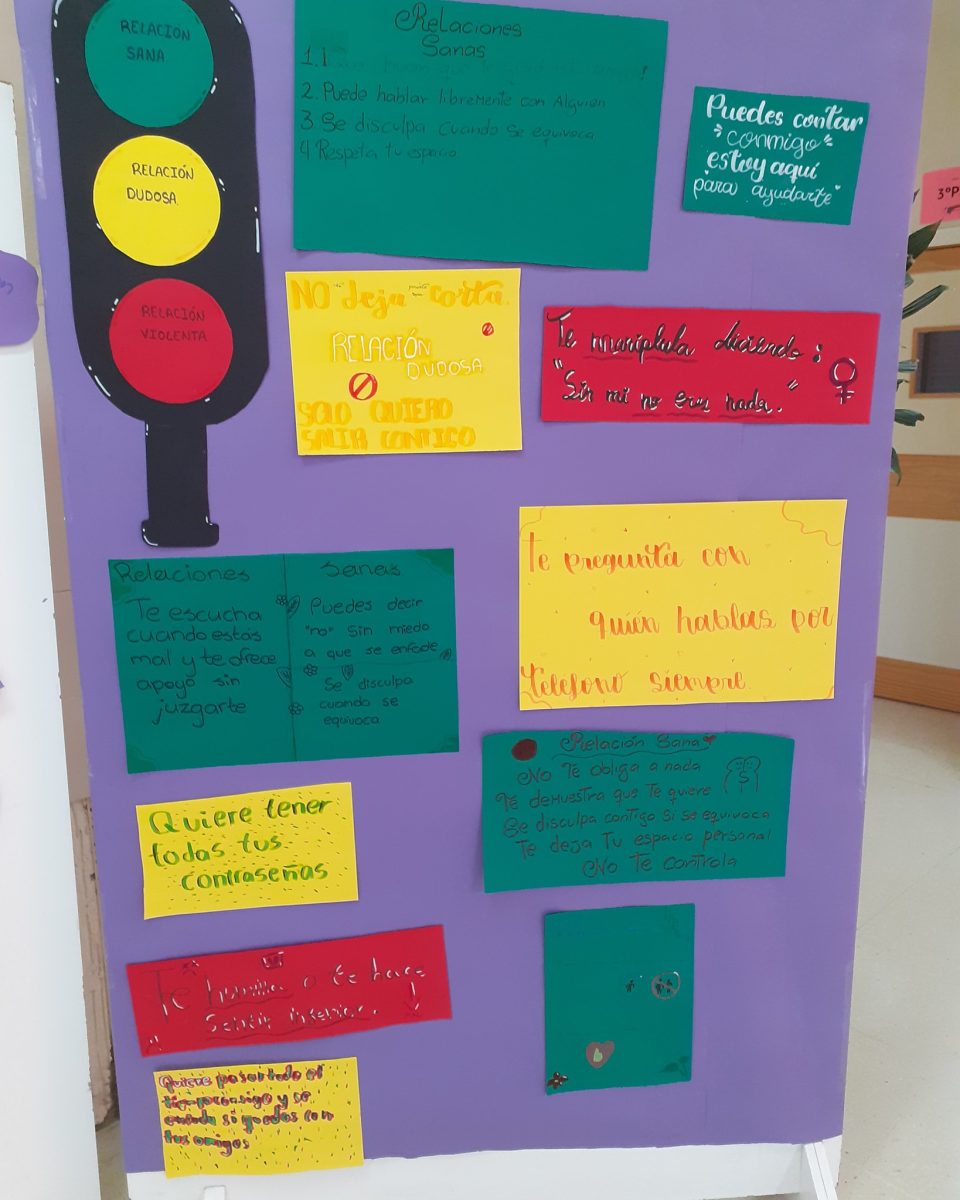 RELACIÓN
SANA
RELACIÓN
DUDOSA
RELACIÓN
VIOLENTA
Relaciones
Sanas
1.
2. Puede hablar libremente con Alguien
3 Se disculpa cuando se equivoca
4 Respeta tu espacio
Puedes contar
"conmigo"
estoy aquí
para ayudarte"
NO deja corta.
RELACIÓN
DUDOSA
SOLO QUIERO
SALIR CONTIGO
Te manipula diciendo:
"Sin mi no eres nada."
Te pregunta con
quién hablas por
telefono siempre.
Relaciones Sanas
Te escucha
cuando estás
mal y te ofrece
apoyo sin
juzgarte
Puedes decir
"no" sin miedo
a que se enfade
Se disculpa
cuando se
equivoca
Relación Sana
No Te obliga a nada
Te demuestra que Te quiere
Se disculpa contigo si se equivoca
Te deja Tu espacio personal
No Te controla
Quiere tener
todas tus
contraseñas
Te humilla o te hace
Sentir inferior.
Quiere pasar todo el
tiempo consigo y se
enfada si quedas con
tus amigos
3ºP